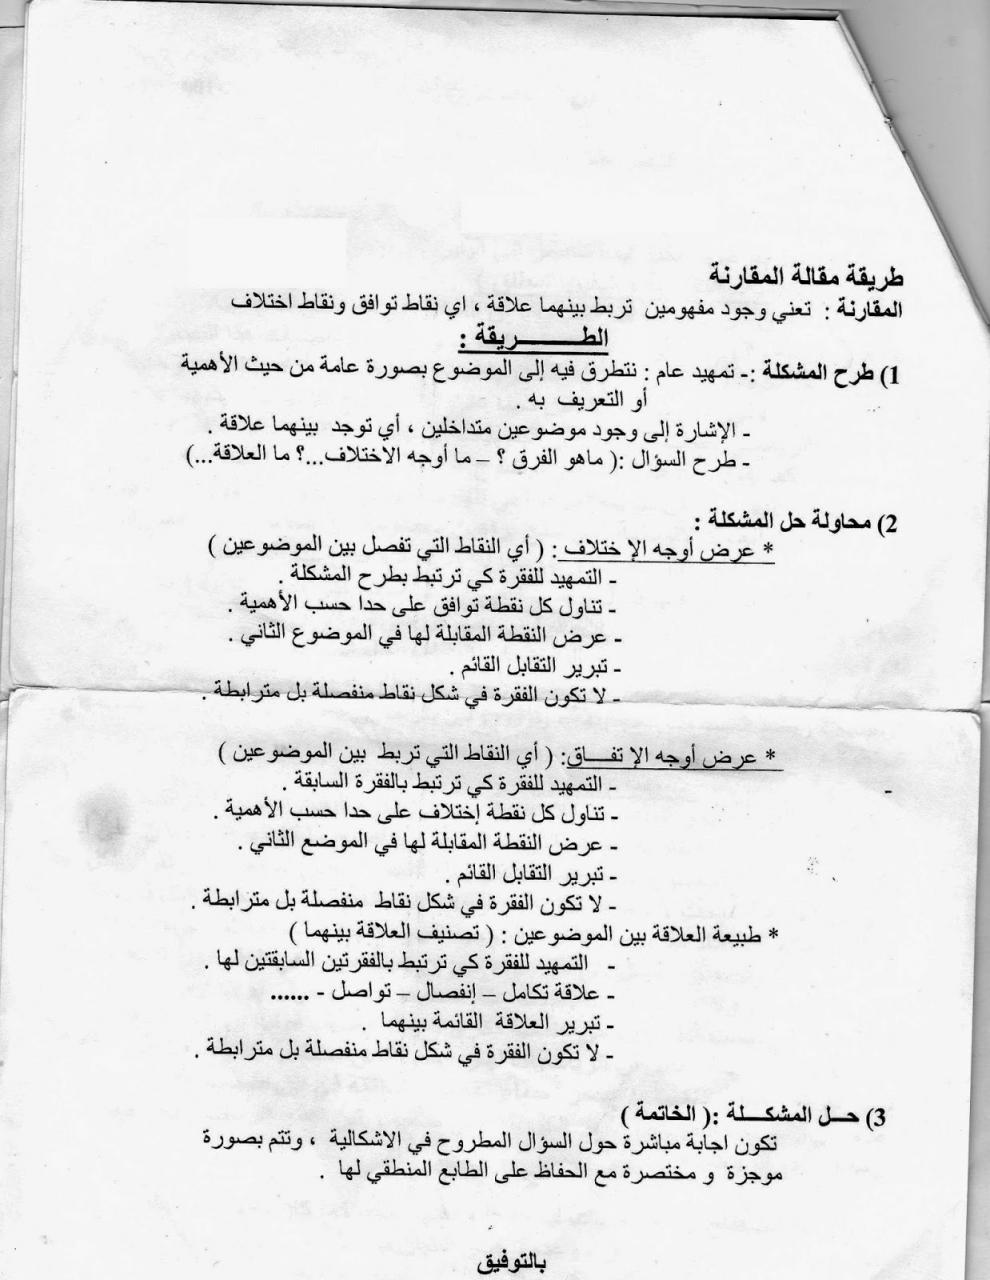 طريقة مقالة المقارنة
المقارنة : تعني وجود مفهومين تربط بينهما علاقة ، اي نقاط توافق ونقاط اختلاف
الطـــــــريقة :
1) طرح المشكلة :ـ تمهيد عام : نتطرق فيه إلى الموضوع بصورة عامة من حيث الأهمية
أو التعريف به .
ـ الإشارة إلى وجود موضوعين متداخلين ، أي توجد بينهما علاقة .
- طرح السؤال :( ماهو الفرق ؟ – ما أوجه الاختلاف...؟ ما العلاقة...)
2) محاولة حل المشكلة :
* عرض أوجه الإ ختلاف : ( أي النقاط التي تفصل بين الموضوعين )
ـ التمهيد للفقرة كي ترتبط بطرح المشكلة .
ـ تناول كل نقطة توافق على حدا حسب الأهمية .
ـ عرض النقطة المقابلة لها في الموضوع الثاني .
ـ تبرير التقابل القائم .
ـ لا تكون الفقرة في شكل نقاط منفصلة بل مترابطة .
* عرض أوجه الإ تفـــاق: ( أي النقاط التي تربط بين الموضوعين )
ـ التمهيد للفقرة كي ترتبط بالفقرة السابقة .
ـ تناول كل نقطة إختلاف على حدا حسب الأهمية .
ـ عرض النقطة المقابلة لها في الموضع الثاني .
ـ تبرير التقابل القائم .
ـ لا تكون الفقرة في شكل نقاط منفصلة بل مترابطة .
* طبيعة العلاقة بين الموضوعين : ( تصنيف العلاقة بينهما )
ـ التمهيد للفقرة كي ترتبط بالفقرتين السابقتين لها .
ـ علاقة تكامل – إنفصال – تواصل - ......
ـ تبرير العلاقة القائمة بينهما .
ـ لا تكون الفقرة في شكل نقاط منفصلة بل مترابطة .
3) حــل المشكــــلة :( الخاتمة )
تكون اجابة مباشرة حول السؤال المطروح في الاشكالية ، وتتم بصورة
موجزة و مختصرة مع الحفاظ على الطابع المنطقي لها .
بالتوفيق